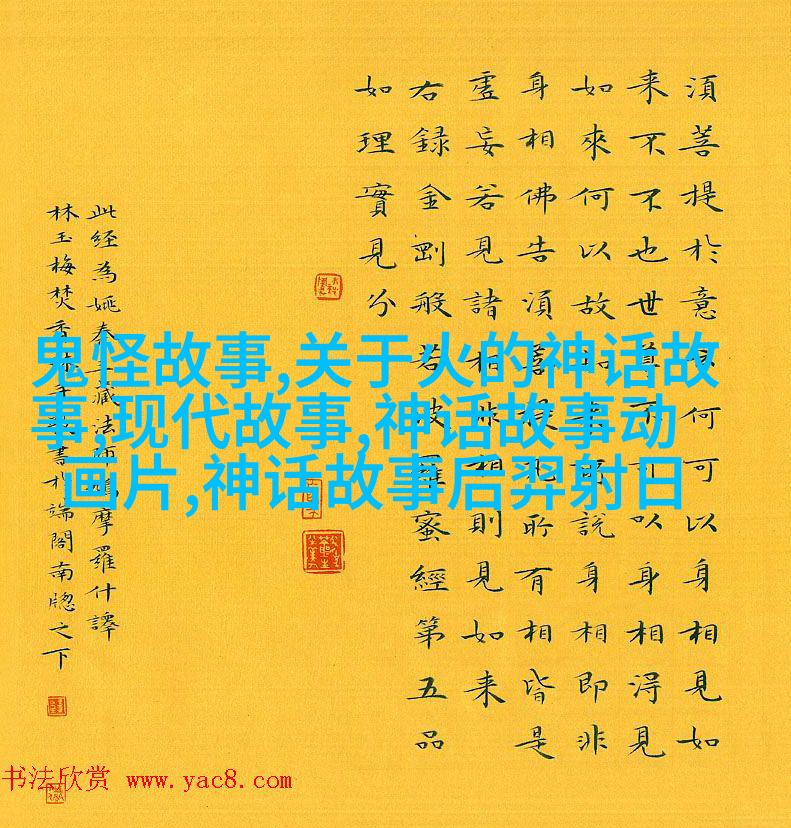 須菩提於意云何可以身相見如
来不不也世尊不可以身相得見
如來何以故如來所說身相即非
身相佛告須菩提凡所有相皆是
虛妄若見諸相非相則見如来
右録金剛般若波羅蜜經第五品
如理實見分
此経為姚秦三藏法師鳩摩羅什譯
林玉梅焚香書於端閣南牕之下
鬼怪故事,关于火的神话故
事,现代故事,神话故事动
画片,神话故事后羿射日
书法欣赏 www.yac8.com